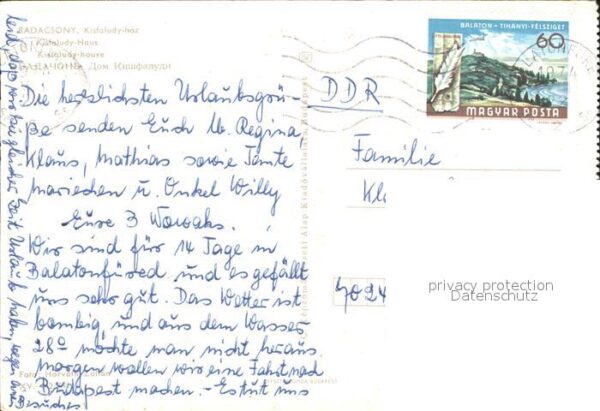 BADACSONY, Kisfaludy-ház
Kisfaludy-Haus
Kisfaludy-house
БАДАЧОНЬ, Дом Кишфалуди
Die herzlichsten Urlaubsgrü-
ße senden Euch lb. Regina
Klaus, Mathias sowie Tante
Mariechen u. Onkel Willy
Eure 3 Wowaks.
Wir sind für 14 Tage in
Balatonfüred und es gefällt
uns sehr gut. Das Wetter ist
bombig und aus dem Wasser
28° möchte man nicht heraus.
Morgen wollen wir eine Fahrt nach
Budapest machen. - Es tut uns
leid, dass wir zu gleicher Zeit Urlaub haben, wegen eures
Besuches
Foto: Horváth Zoltán
Képzőművészeti Alap Kiadóvállalata, Budapest
BALATON - TIHANYI-FÉLSZIGET
60f
MAGYAR POSTA
DDR
Familie
Kl
7024
privacy protection
Datenschutz